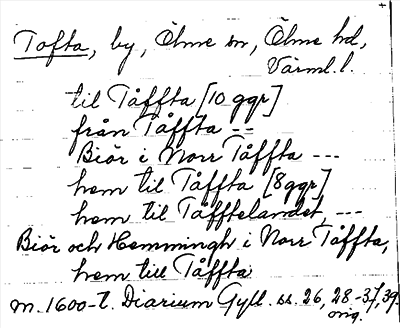 Tofta, by, Ölme sn, Ölme hd,
Värml. l.
til Tåffta [10 ggr]
från Tåffta --
Biör i Norr Tåffta ---
hem til Tåffta [8 ggr]
hem til Tåfftelandet, ---
Biör och Hemmingh i Norr Tåffta,
hem till Tåffta
m. 1600-t. Diarium Gyll. ss. 26, 28-37, 39.
orig.